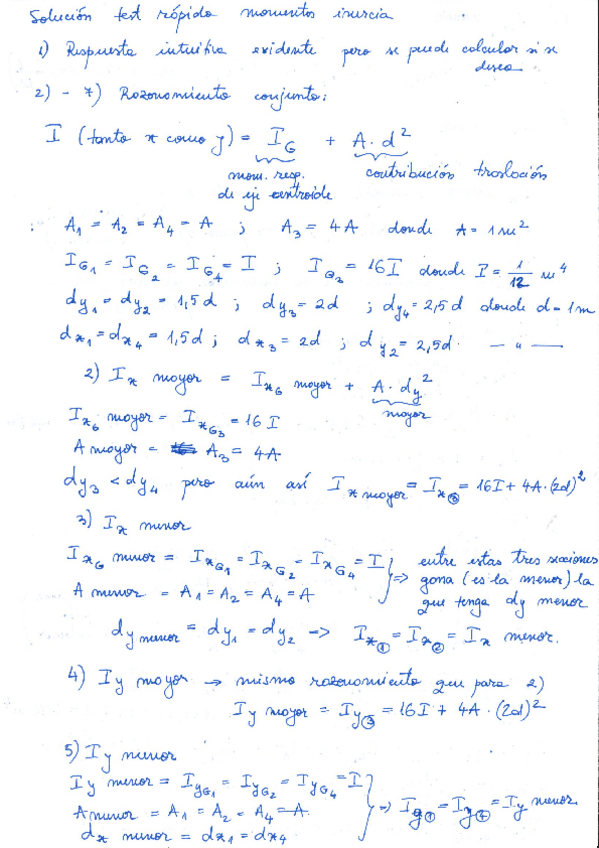 Solución test rápido momentos inercia
1) Respuesta intuitiva evidente pero se puede calcular si se
desea
2) - 7) Razonamiento conjunto:
I (tanto x como y) = I_G + A·d²
mom. resp. contribución traslación
de eje centroide
: A₁ = A₂ = A₄ = A ; A₃ = 4A donde A = 1m²
I_G₁ = I_G₂ = I_G₄ = I ; I_G₃ = 16I donde I = 1/12 m⁴
dy₁ = dy₂ = 1,5d ; dy₃ = 2d ; dy₄ = 2,5d donde d = 1m
dx₁ = dx₄ = 1,5d ; dx₃ = 2d ; dy₂ = 2,5d. — " —
2) Ix mayor = I_xG mayor + A·dy²
mayor
I_xG mayor = I_xG₃ = 16 I
A mayor = A₃ = 4A
dy₃ < dy₄ pero aún así Ix mayor = Ix③ = 16I + 4A·(2d)²
3) Ix menor
I_xG menor = I_xG₁ = I_xG₂ = I_xG₄ = I } => entre estas tres secciones
A menor = A₁ = A₂ = A₄ = A gana (es la menor) la
que tenga dy menor
dy menor = dy₁ = dy₂ => Ix① = Ix② = Ix menor.
4) Iy mayor → mismo razonamiento que para 2)
Iy mayor = Iy③ = 16I + 4A·(2d)²
5) Iy menor
Iy menor = I_yG₁ = I_yG₂ = I_yG₄ = I
A menor = A₁ = A₂ = A₄ = A } => Iy① = Iy④ = Iy menor
dx menor = dx₁ = dx₄